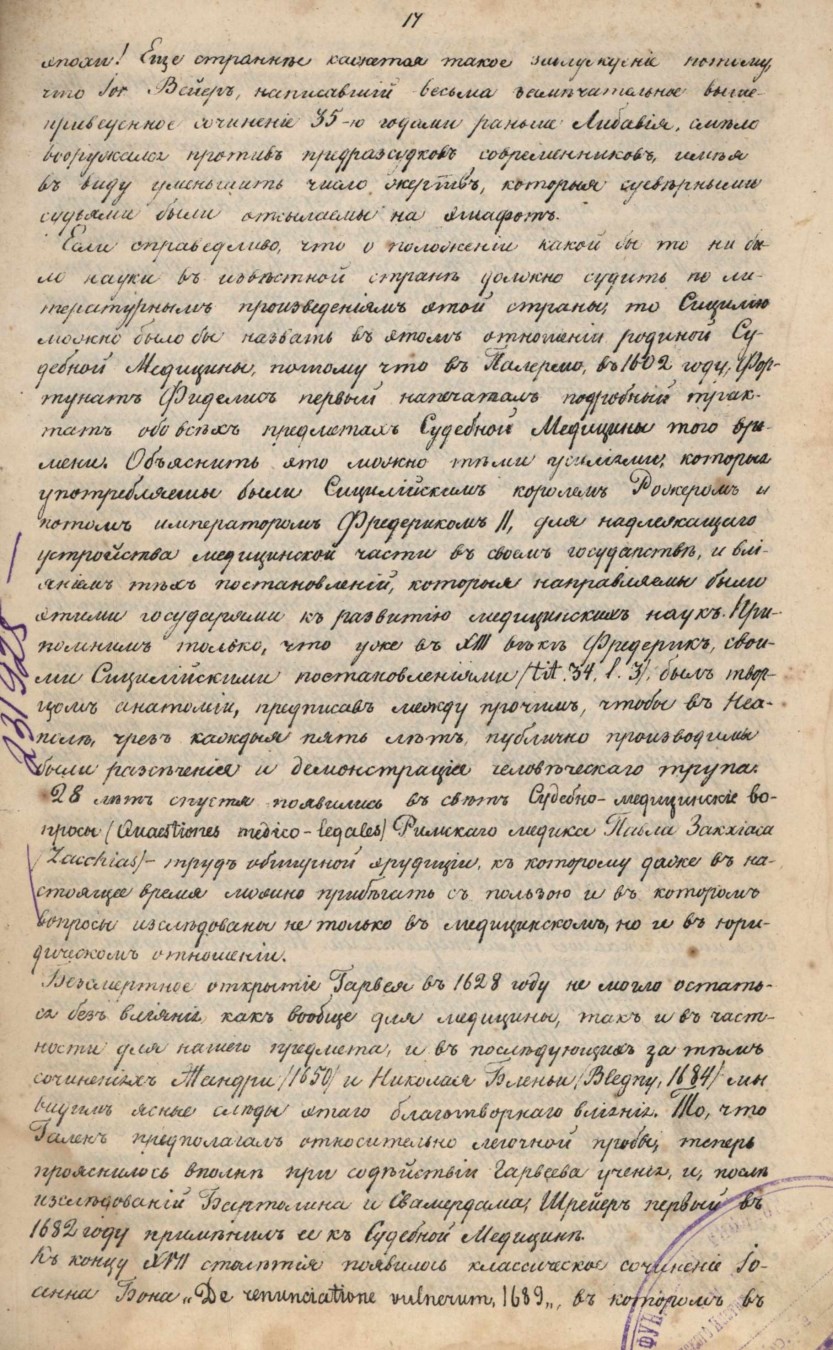 17
эпохи! Еще страннѣе кажется такое заблужденіе потому,
что Іог Вейеръ, написавшій весьма замѣчательное выше-
приведенное сочиненіе 35-ю годами раньше Либавія, смѣло
вооружался противъ предразсудковъ современниковъ, имѣя
въ виду уменьшить число жертвъ, которыя суевѣрными
судьями были отсылаемы на эшафотъ.
Если справедливо, что о положеніи какой бы то ни бы-
ло науки въ извѣстной странѣ должно судить по ли-
тературнымъ произведеніямъ этой страны, то Сицилію
можно было бы назвать въ этомъ отношеніи родиной Су-
дебной Медицины, потому что въ Палермо, въ 1602 году, Фор-
тунатъ Фиделисъ первый напечаталъ подробный трак-
татъ обо всѣхъ предметахъ Судебной Медицины того вре-
мени. Объяснить это можно тѣми усиліями, которыя
употребляемы были Сицилійскимъ королемъ Рожеромъ и
потомъ императоромъ Фредерикомъ II, для надлежащаго
устройства медицинской части въ своемъ государствѣ, и влі-
яніемъ тѣхъ постановленій, которыя направляемы были
этими государями къ развитію медицинскихъ наукъ. При-
помнимъ только, что уже въ XIII вѣкѣ Фредерикъ, свои-
ми Сицилійскими постановленіями /tit. 34. l. 3/, былъ твор-
цомъ анатоміи, предписавъ между прочимъ, чтобы въ Неа-
полѣ, чрезъ каждыя пять лѣтъ, публично производимы
были разсѣченія и демонстраціи человѣческаго трупа.
28 лѣтъ спустя появились въ свѣтъ Судебно-медицинскіе во-
просы (Quaestiones medico-legales) Римскаго медика Павла Закхіаса
/Zacchias/ - трудъ обширной эрудиціи, къ которому даже въ на-
стоящее время можно прибѣгать съ пользою и въ которомъ
вопросы изслѣдованы не только въ медицинскомъ, но и въ юри-
дическомъ отношеніи.
Безсмертное открытіе Гарвея въ 1628 году не могло остать-
ся безъ вліянія, какъ вообще для медицины, такъ и въ част-
ности для нашего предмета, и въ послѣдующихъ за тѣмъ
сочиненіяхъ Жандри /1650/ и Николая Бленьи /Blegny, 1684/ мы
видимъ ясные слѣды этаго благотворнаго вліянія. То, что
Галенъ предполагалъ относительно легочной пробы, теперь
прояснилось вполнѣ при содѣйствіи Гарвеева ученія, и, послѣ
изслѣдованій Бартолина и Свамердама, Шрейеръ первый въ
1682 году примѣнилъ ее къ Судебной Медицинѣ.
Къ концу XVII столѣтія появилось классическое сочиненіе Іо-
анна Бона „De renunciatione vulnerum, 1689„, въ которомъ въ
231928